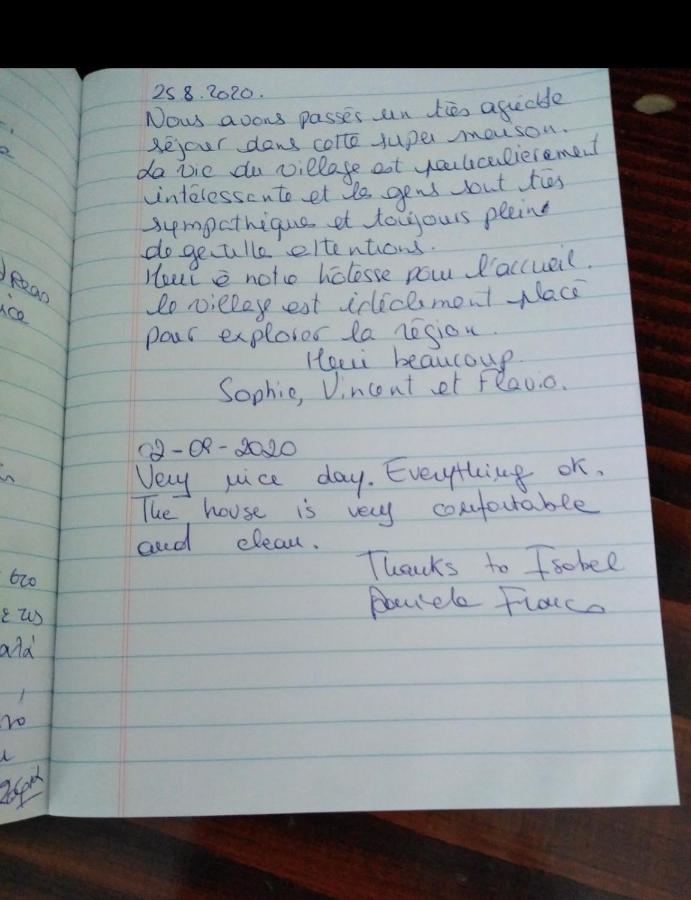 25.8.2020.
Nous avons passés un très agréable
séjour dans cette super maison.
La vie du village est particulièrement
intéressante et les gens sont très
sympathique et toujours pleins
de gentille attentions.
Merci à notre hôtesse pour l'accueil.
Le village est idéalement placé
pour explorer la région.
Merci beaucoup.
Sophie, Vincent et Flavio.
02-09-2020
Very nice day. Everything ok.
The house is very comfortable
and clean.
Thanks to Isabel
Daniela Franco